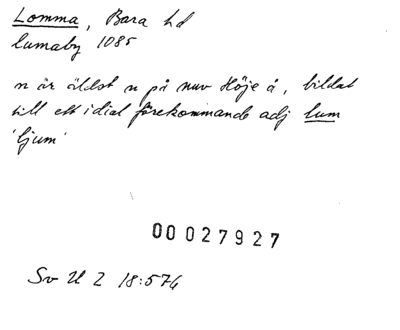 Lomma, Bara hd
lumaby 1085
n är äldst n på nuv Höje å, bildat
till ett i dial förekommande adj lum
'ljum'
00027927
Sv U 2 18:574